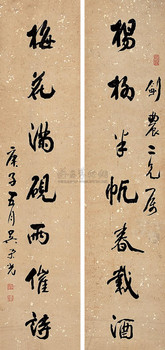 劍農二兄屬
楊柳半帆春載酒
梅花滿硯雨催詩
庚子五月吳榮光